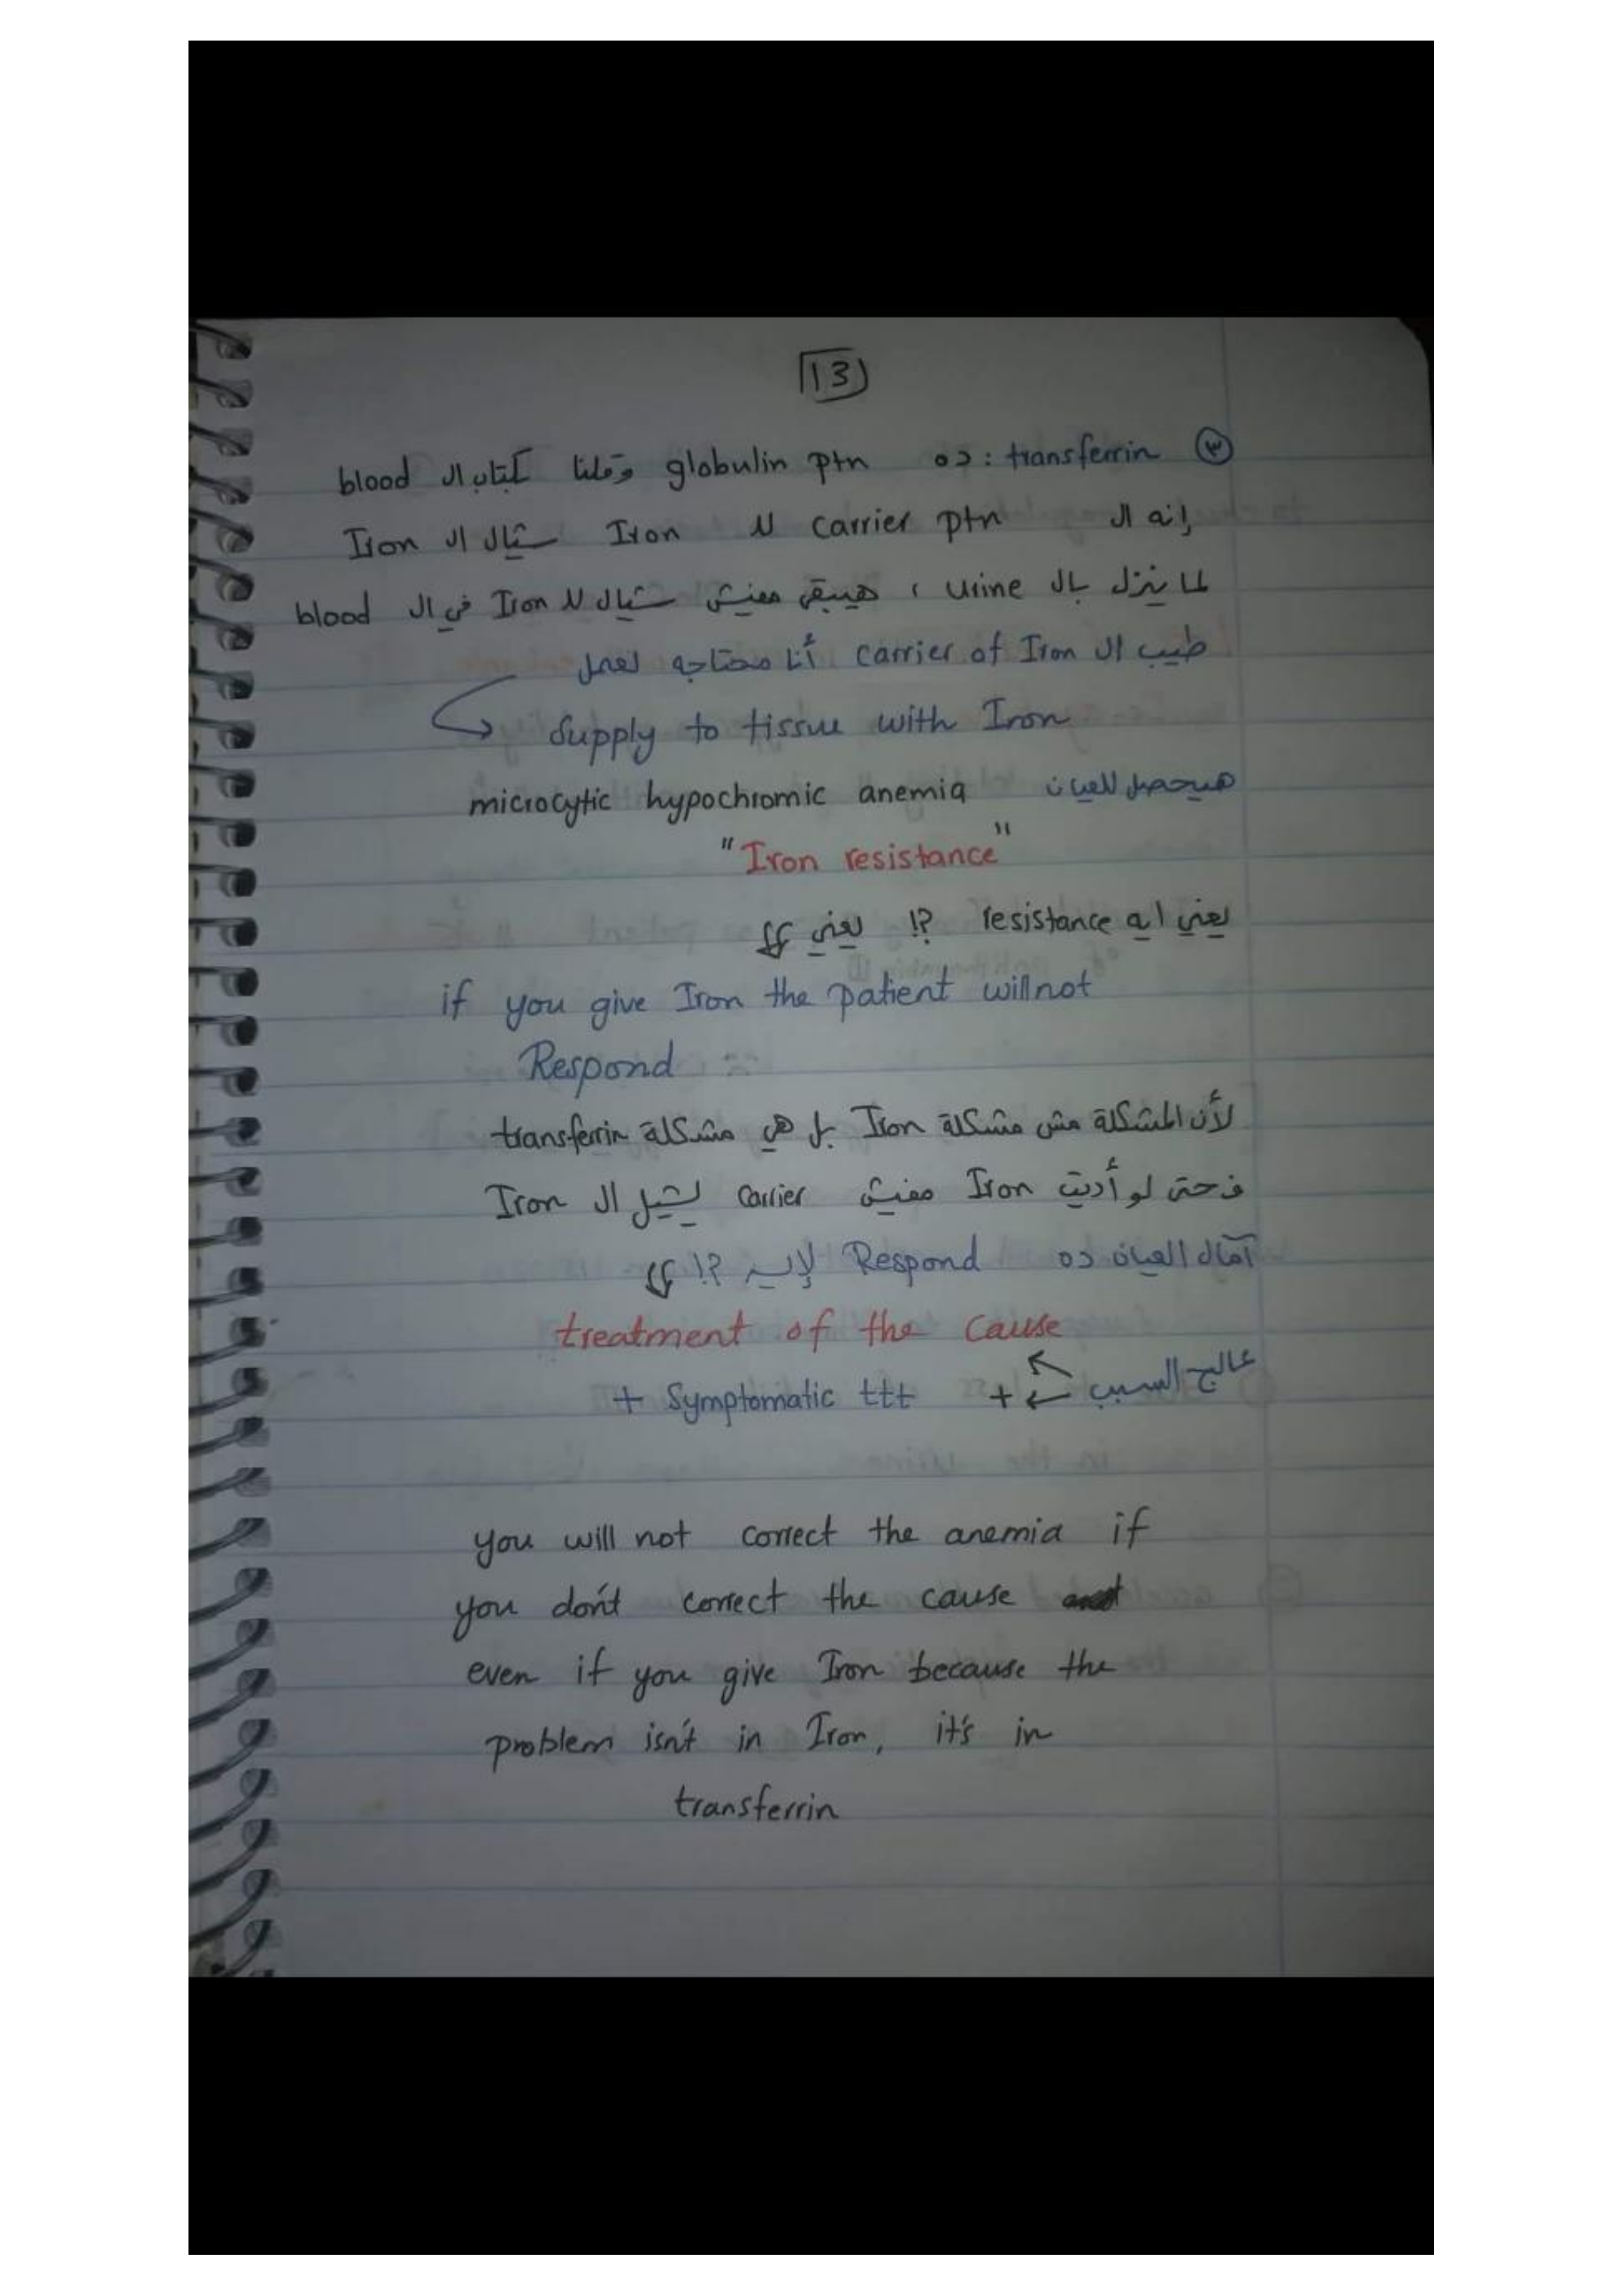 13
③ transferrin : ده globulin ptn وقلنا كتاب ال blood
إنه ال carrier ptn لل Iron شيال ال Iron
لما ينزل بال urine ، هيبقى مفيش شيال لل Iron في ال blood
طيب ال carrier of Iron أنا محتاجه لعمل
Supply to tissue with Iron
هيحصل للعيان microcytic hypochromic anemia
"Iron resistance"
يعني ايه resistance ?! يعني
if you give Iron the patient will not
Respond
لأن المشكلة مش مشكلة Iron بل هي مشكلة transferrin
فحتى لو أديت Iron مفيش carrier يشيل ال Iron
آمال العيان ده Respond لإيه ?!
treatment of the cause
عالج السبب + + Symptomatic ttt
you will not correct the anemia if
you don't correct the cause
even if you give Iron because the
problem isn't in Iron, it's in
transferrin